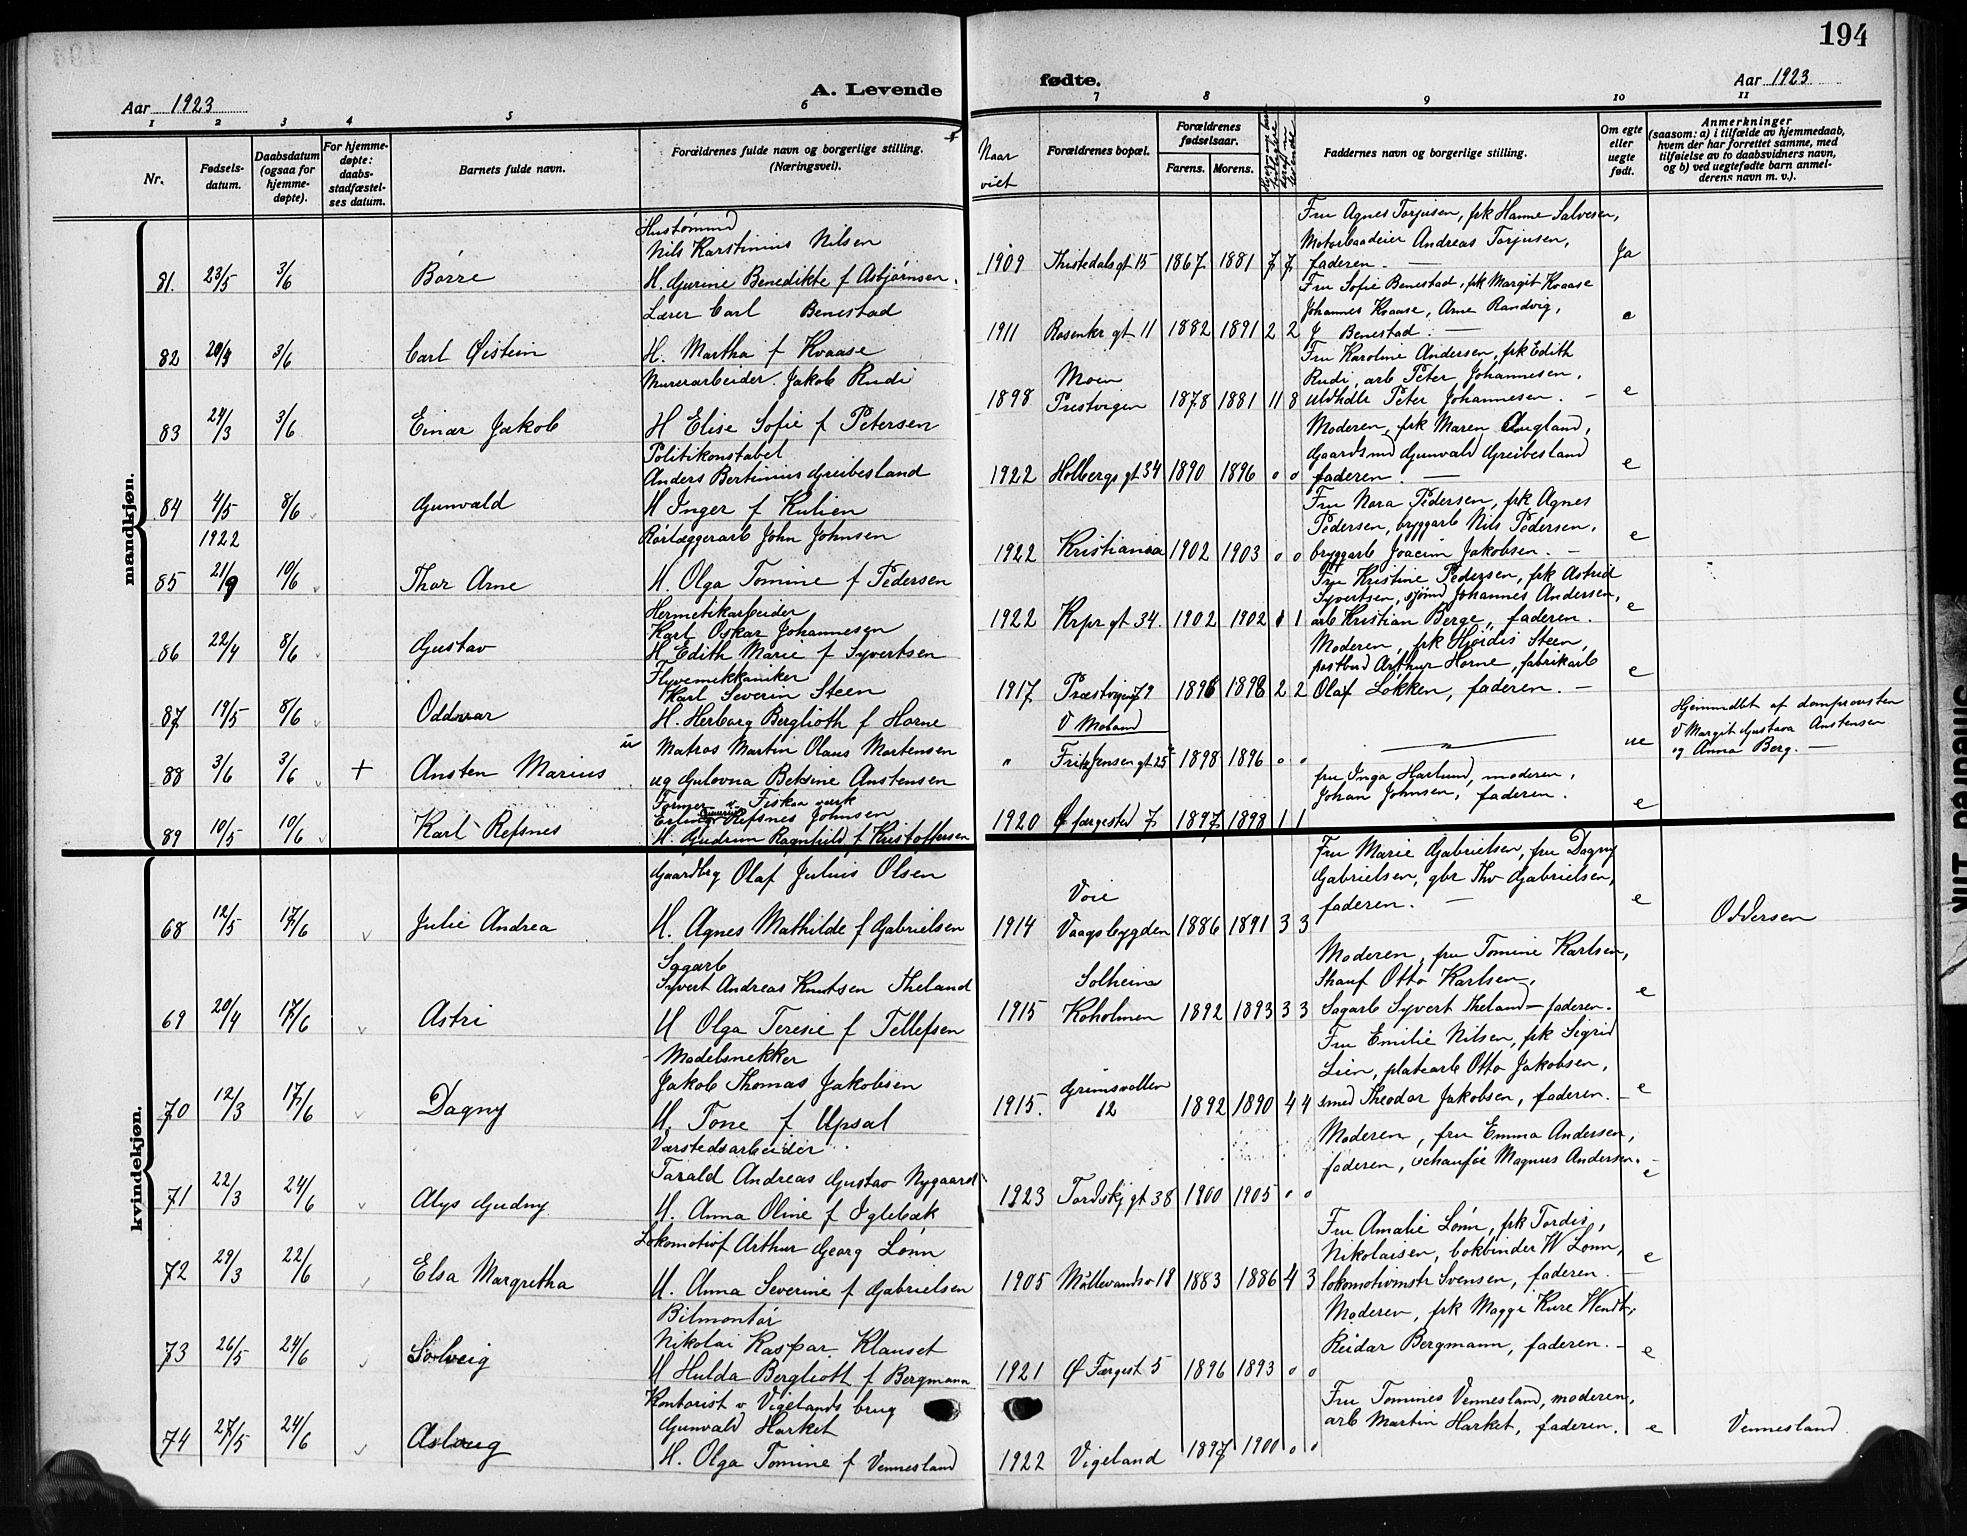 194
Aar 1923
A. Levende
fødte.
Aar 1923
1 2 3 4 5 6 7 8 9 10 11
Nr.
Fødsels-
datum.
Daabsdatum
(ogsaa for
hjemme-
døpte).
For hjemme-
døpte:
daabs-
stadfæstel-
ses datum.
Barnets fulde navn.
Forældrenes fulde navn og borgerlige stilling.
(Næringsvei).
Naar
viet
Forældrenes bopæl.
Forældrenes
fødselsaar.
Farens. Morens.
Faddernes navn og borgerlige stilling.
Om egte
eller
uegte
født.
Anmerkninger
(saasom: a) i tilfælde av hjemmedaab,
hvem der har forrettet samme, med
tilføielse av to daabsvidners navn,
og b) ved uegtefødte barn anmel-
derens navn m. v.).
mandkjøn.
Hustømmd
Nils Karstinius Nilsen
81. 23/5 3/6 Börre H. Gurine Benedikte f Asbjørnsen.
1909 Thistedals gt 15 1867 1881 7 7
Fru Agnes Torjusen, frk Hanne Salvesen,
Motorbaadeier Andreas Torjusen,
faderen. — Ja
Lærer Carl Benestad
82 20/4 3/6 Carl Øistein H. Martha f Kvaase
1911 Rosenkr gt 11 1882 1891 2 2
Fru Sofie Benestad, frk Margit Kvaase
Johannes Kvaase, Arne Randvig,
J Benestad. — e
Murerarbeider Jakob Rudi
83 24/3 3/6 Einar Jakob H Elise Sofie f Petersen
1898 Moen
Prestvegen 1878 1881 11 8
Fru Karoline Andersen, frk Edith
Rudi, arb Peter Johannesen,
Peter Johannesen. — e
Politikonstabel
Anders Bertinius Greibesland
84 4/5 8/6 Gunvald H Inger f Kulien
1922 Holbergs gt 34 1890 1896 0 0
Moderen, frk Maren Augland,
Gaardsmd Gunvald Greibesland
faderen. — e
1922
Rörlæggerarb John Johnsen
85 21/9 10/6 Thor Arne H. Olga Tomine f Pedersen
1922 Kristiania 1902 1903 0 0
Fru Nora Pedersen, frk Agnes
Pedersen, bryggarb Nils Pedersen,
bryggarb Joacim Jakobsen. — e
Hermetikarbeider
Karl Oskar Johannesen
86 22/4 8/6 Gustav H Edith Marie f Syvertsen
1922 Krpr gt 34. 1902 1902 1 1
Fru Kristine Pedersen, frk Astrid
Syvertsen, sjømd Johannes Andersen,
arb Kristian Berge, faderen. e
Flyvemekkaniker
Karl Severin Steen
87 19/5 8/6 Oddvar H. Herborg Berglioth f Horne
1917 Præstvigen 79 1898 1898 2 2
Moderen, frk Hjördis Steen,
postbud Arthur Horne, fabrikarb
Olaf Lökken, faderen. — e
Matros Martin Olaus Mortensen
88 3/6 3/6 + Ansten Marius og Gulovna Betsine Anstensen
V Moland
" Fritz Jensen gt 25 1898 1896 0 0
— ue
Hjemmdbt af domprovsten
V Margit Gustava Anstensen
og Anna Berg. —
Former v. Fiskaa verk
Erling Refsnes Johnsen
89 10/5 10/6 Karl Refsnes H. Gudrun Ragnhild f Kristoffersen
1920 Ø færgested 7 1897 1898 1 1
fru Inga Harlund, moderen,
Johan Johnsen, faderen. e
kvindekjøn.
Gaardbrg Olaf Julius Olsen
68 12/5 17/6 Julie Andrea H. Agnes Mathilde f Gabrielsen
1914 Voie
Vaagsbygden 1886 1891 3 3
Fru Marie Gabrielsen, fru Dagny
Gabrielsen, gbr Thv Gabrielsen,
faderen. — e Oddersen
Sagarb
Syvert Andreas Knutsen Theland
69 20/4 17/6 Astri H Olga Teresie f Tellefsen
1915 Solheim
Koholmen 1892 1893 3 3
Moderen, fru Tomine Karlsen,
Otto Karlsen,
Sagarb Syvert Theland — faderen. e
Modelsnekker
Jakob Thomas Jakobsen
70 12/3 17/6 Dagny H. Tone f Upsal
1915. Grimsvollen
12 1892 1890 4 4
Fru Emilie Nilsen, frk Sigrid
Lien, platearb Otto Jakobsen,
smed Theodor Jakobsen, faderen. — e
Værstedsarbeider
Tarald Andreas Gustav Nygaard
71 22/3 24/6 Alys Gudny H. Anna Oline f Iglebæk
1923 Tordskj gt 38 1900 1905 0 0
Moderen, fru Emma Andersen,
faderen, schauför Magnus Andersen. — e
Lokomotivf Arthur Georg Lonn
72 29/3 22/6 Elsa Margretha H. Anna Severine f Gabrielsen
1905 Møllevandsv 18 1883 1886 4 3
Fru Amalie Lonn, frk Tordis
Nikolaisen, bokbinder W Lonn,
lokomotivmstr Svensen, faderen. — e
Bilmontör
Nikolai Kaspar Klauset
73 26/5 24/6 Solveig H Hulda Berglioth f Bergmann
1921 Ø Færgest 5 1896 1893 0 0
Moderen, frk Maggi Kure Wendt,
Reidar Bergmann, faderen. — e
Kontorist v Vigelands brug
Gunvald Harket
74 27/5 24/6 Aslaug H. Olga Tomine f Vennesland
1922 Vigeland 1897 1900 0 0
Fru Tommes Vennesland, moderen,
arb Martin Harket, faderen. e Vennesland